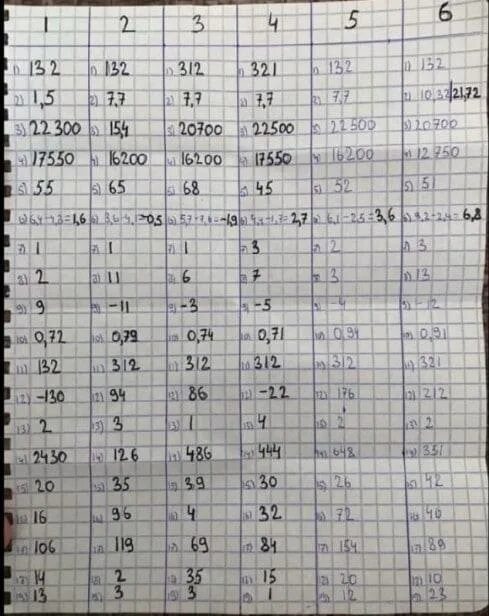 1 2 3 4 5 6
1) 132 1) 132 1) 312 1) 321 1) 132 1) 132
2) 1,5 2) 7,7 2) 7,7 2) 7,7 2) 7,7 2) 10,32/21,72
3) 22300 3) 154 3) 20700 3) 22500 3) 22500 3) 20700
4) 17550 4) 16200 4) 16200 4) 17550 4) 16200 4) 12750
5) 55 5) 65 5) 68 5) 45 5) 52 5) 51
6) =1,6 6) =0,5 6) =-1,9 6) =2,7 6) 6,1-2,5=3,6 6) 9,2-2,4=6,8
7) 1 7) 1 7) 1 7) 3 7) 2 7) 3
8) 2 8) 11 8) 6 8) 7 8) 3 8) 13
9) 9 9) -11 9) -3 9) -5 9) -4 9) -12
10) 0,72 10) 0,79 10) 0,74 10) 0,71 10) 0,94 10) 0,91
11) 132 11) 312 11) 312 11) 312 11) 312 11) 321
12) -130 12) 94 12) 86 12) -22 12) 176 12) 212
13) 2 13) 3 13) 1 13) 4 13) 2 13) 2
14) 2430 14) 126 14) 486 14) 444 14) 648 14) 351
15) 20 15) 35 15) 39 15) 30 15) 26 15) 42
16) 16 16) 96 16) 4 16) 32 16) 72 16) 46
17) 106 17) 119 17) 69 17) 84 17) 154 17) 89
18) 14 18) 2 18) 35 18) 15 18) 20 18) 10
19) 13 19) 3 19) 3 19) 1 19) 12 19) 23